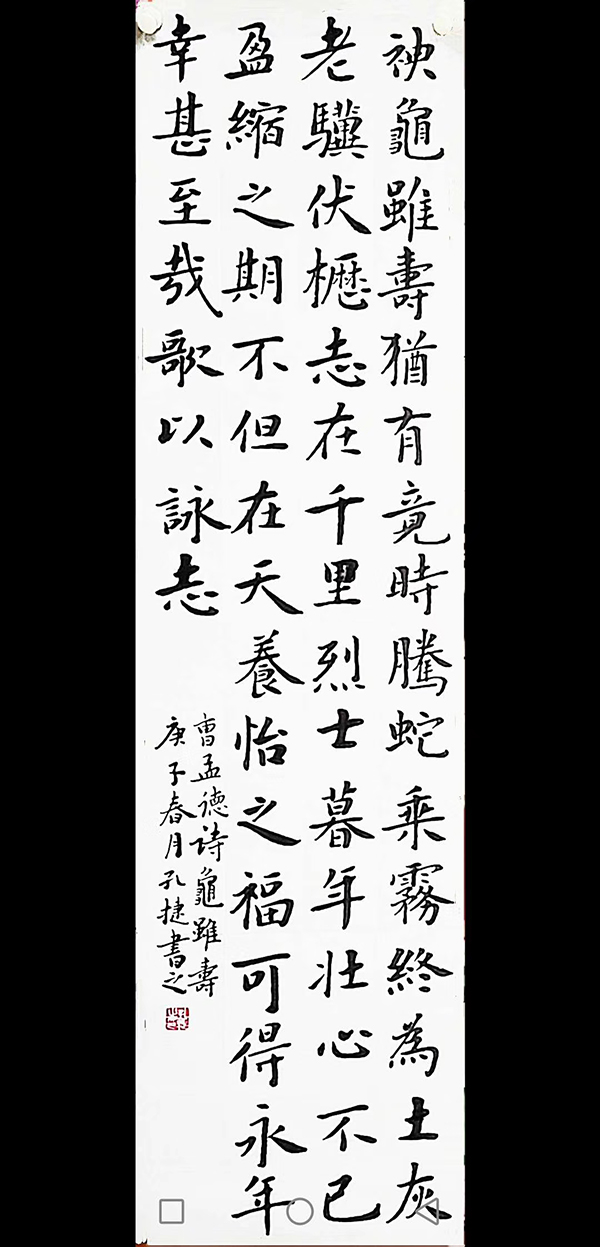 神龜雖壽猶有竟時騰蛇乘霧終為土灰
老驥伏櫪志在千里烈士暮年壯心不已
盈縮之期不但在天養怡之福可得永年
幸甚至哉歌以詠志
曹孟德詩龜雖壽
庚子春月孔捷書之